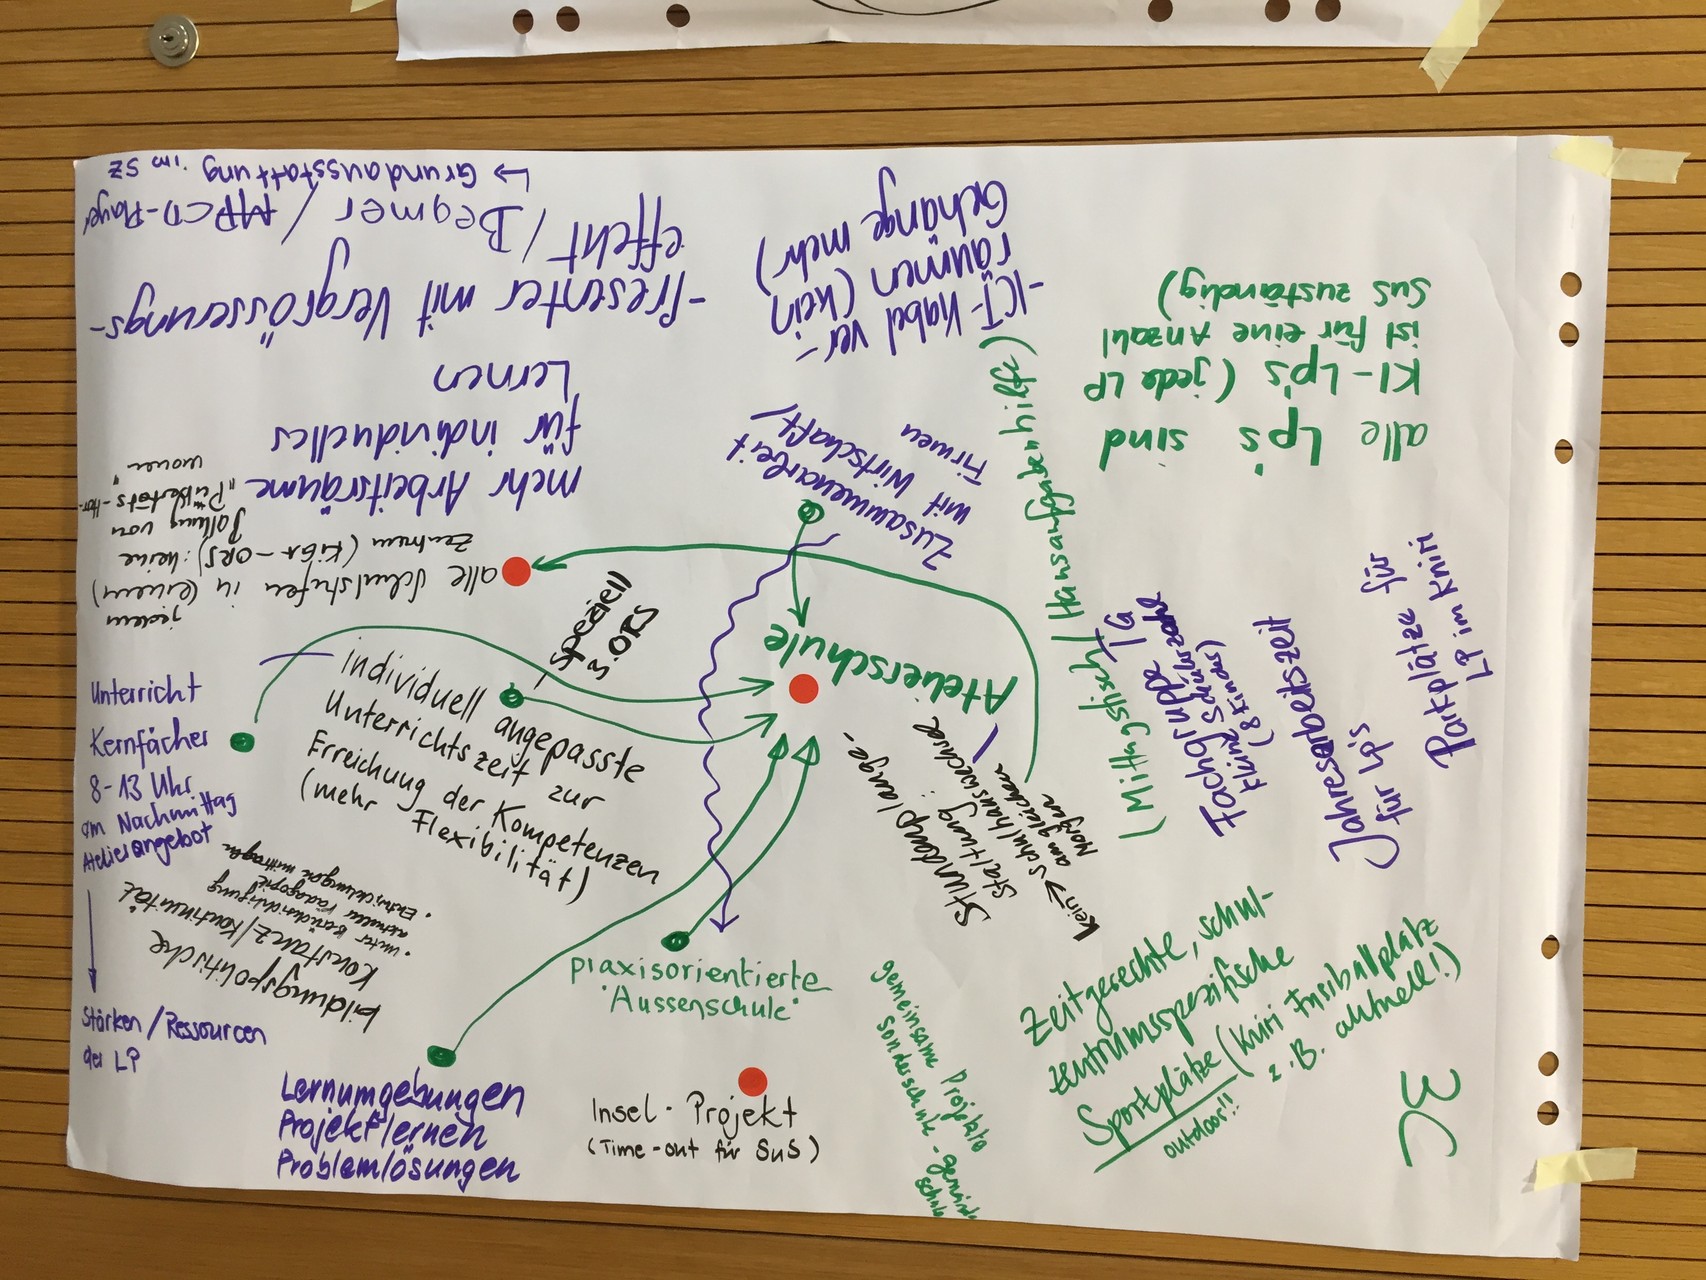 -Presenter mit Vergrösserungs-
effekt / Beamer / CD-Player
↳ Grundausstattung im SZ
-ICT-Kabel ver-
räumen (kein
Gehänge mehr)
mehr Arbeitsräume
für individuelles
Lernen
alle Lp's sind
KI-Lp's (jede LP
ist für eine Anzahl
SuS zuständig)
Zusammenarbeit
mit Wirtschaft/
Firmen
alle Schulstufen in (einem)
jedem
Zentrum (KiGa-ORS): keine
Ballung von
"Pubertäts-Hor-
monen"
speziell
3.ORS
Atelierschule
individuell angepasste
Unterrichtszeit zur
Erreichung der Kompetenzen
(mehr Flexibilität)
Unterricht
Kernfächer
8-13 Uhr
am Nachmittag
Atelierangebot
Stärken/Ressourcen
der LP
bildungspolitische
Konstanz/Kontinuität
• unter Berücksichtigung
aktueller Pädagogik
• Entwicklungen mittragen
Stundenplange-
staltung:
kein → Schulhauswechsel
am gleichen
Morgen
(Mittagstisch/Hausaufgabenhilfe)
Fachgruppe TG
kleine Schülerzahl
(8 Kinder)
Jahresarbeitszeit
für Lp's
Parkplätze für
LP im Kniri
praxisorientierte
"Aussenschule"
Lernumgebungen
Projektlernen
Problemlösungen
Insel-Projekt
(Time-out für SuS)
gemeinsame Projekte
Sonderschule-Gemeinde-
schule
Zeitgerechte, schul-
zentrumsspezifische
Sportplätze (Kniri Fussballplatz
z.B. aktuell!)
outdoor!!
3C